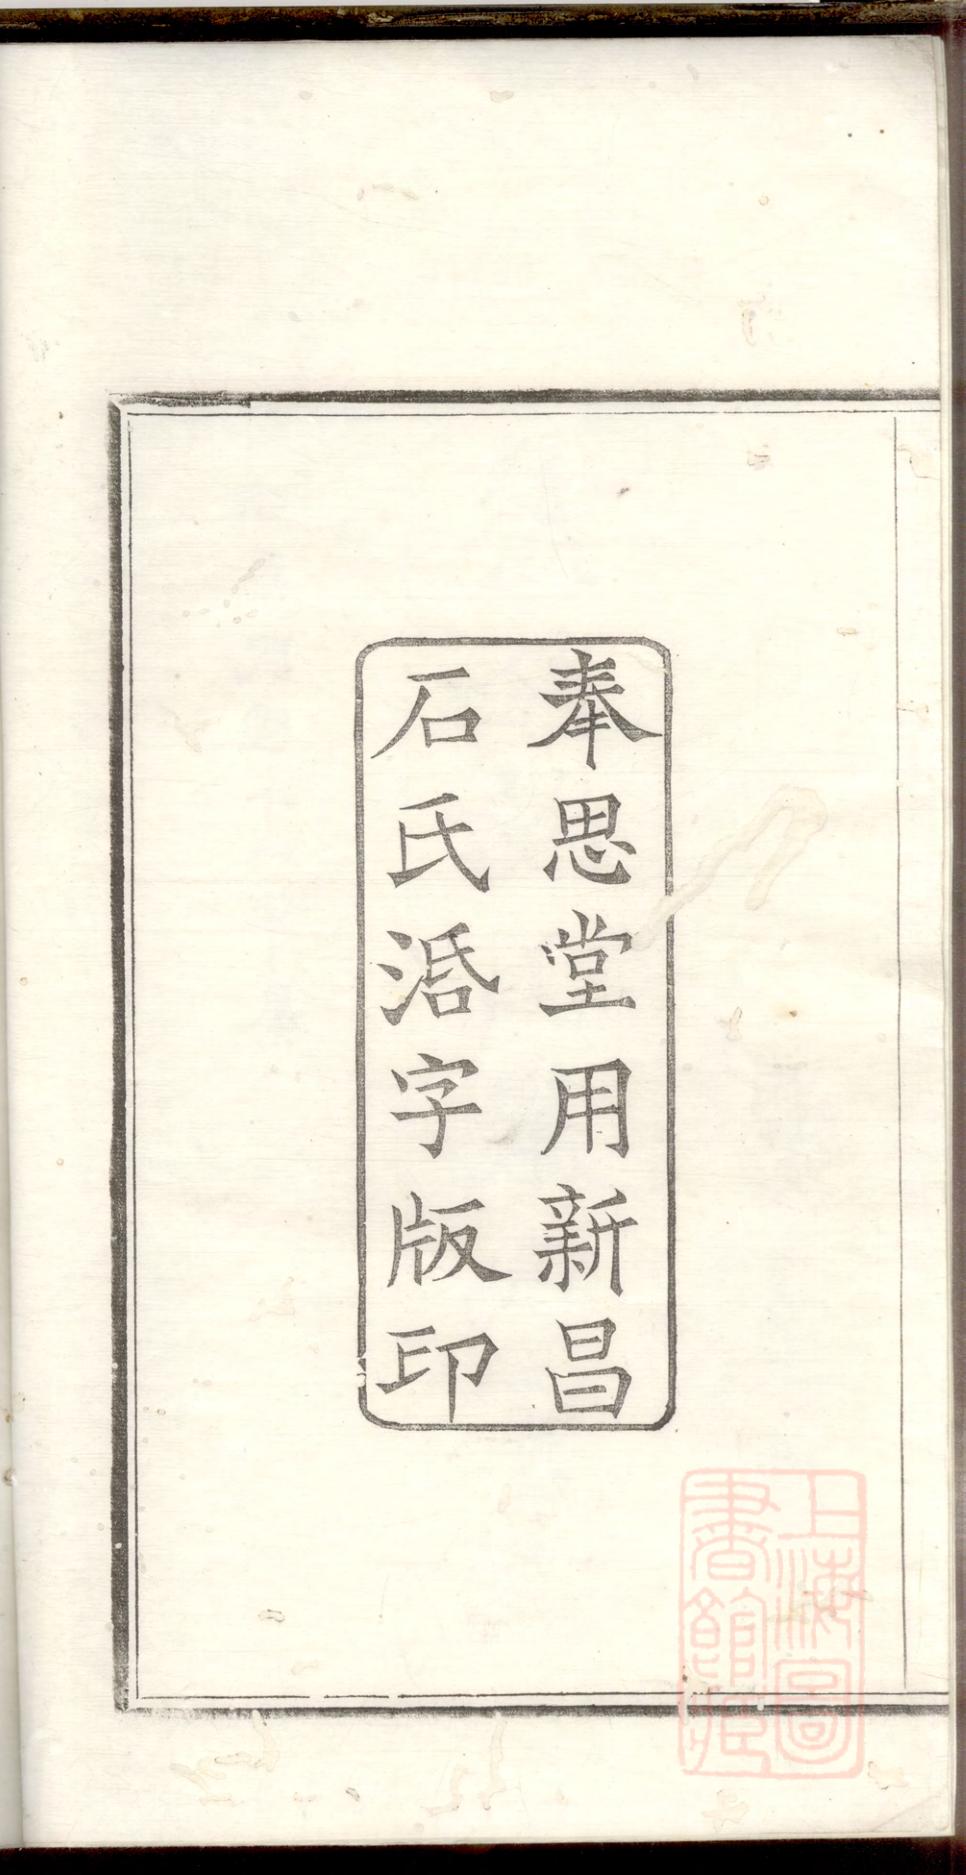 奉思堂用新昌
石氏活字版印
上海圖
書館藏